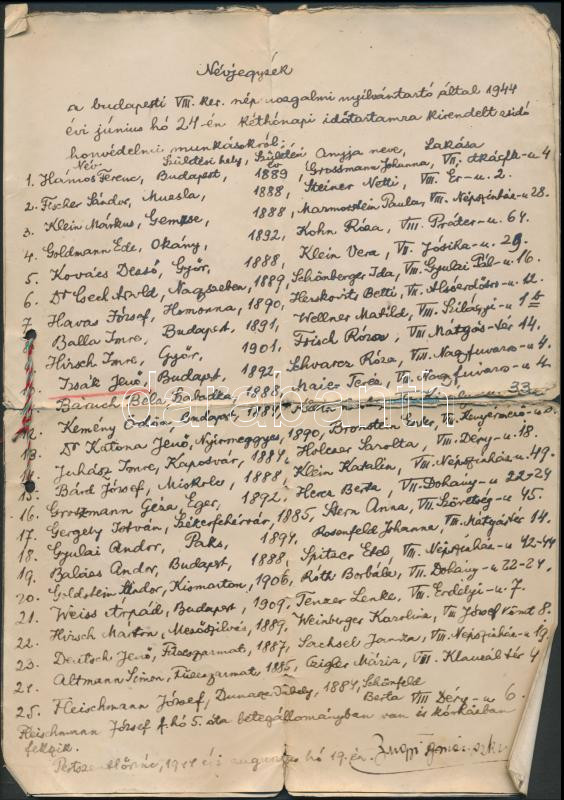 Névjegyzék
a budapesti VIII. ker. népmozgalmi nyilvántartó által 1944
évi június hó 24-én kéthónapi időtartamra kirendelt zsidó
honvédelmi munkásokról:
Név Születési hely, Születési év Anyja neve, Lakása
1. Hámos Ferenc, Budapest, 1889, Grossmann Johanna, VII. u. 4
2. Fischer Sándor, 1888, Steiner Netti, VIII. Ér-u. 2.
3. Klein Márkus, 1888, Marmorstein Paula, VIII. Népszínház-u 28.
4. Goldmann Ede, Okány, 1892, Kohn Róza, VIII. Práter-u. 64.
5. Kovács Dezső, Győr, 1888, Klein Vera, VII. Jósika-u. 29.
6. Dr Cech Arvold, Nagyszeben, 1889, Schönberger Ida, VIII. Gyulai Pál-u. 16.
7. Havas József, Homonna, 1890, Herskovits Betti, VII. Alsóerdősor-u. 12.
Balla Imre, Budapest, 1891, Wellner Matild, VIII. Szilágyi-u 1
Hirsch Imre, Győr, 1901, Frisch Róza, VIII. Mátyás-tér 14.
Izsák Jenő, Budapest, 1892, Schwarcz Róza, VIII. Nagyfuvaros-u 4.
Baruch Béla, Szabadka, 1888, Maier Teréz, VIII. Nagyfuvaros-u 4.
12. Kemény Ödön, Budapest, 33.
13. Dr Katona Jenő, Nyírmeggyes, 1890, Bronstein
14. Juhász Imre, Kaposvár, 1884, Holczer Sarolta, VIII. Déry-u. 18.
15. Bárd József, Miskolc, 1888, Klein Katalin, VIII. Népszínház-u. 49.
16. Groszmann Géza, Eger, 1892, Hercz Berta, VII. Dohány-u 22-24
17. Gergely István, Székesfehérvár, 1885, Stern Anna, VII. Szövetség-u 45.
18. Gyulai Andor, Paks, 1894, Rosenfeld Johanna, VIII. Mátyás tér 14.
19. Balázs Andor, Budapest, 1888, Spitzer Etel, VIII. Népszínház-u 42-44
20. Goldstein Andor, Kismarton, 1906, Róth Borbála, VII. Dohány-u 22-24,
21. Weiss Árpád, Budapest, 1909, Tenzer Lenke, VIII. Erdélyi-u. 7.
22. Hirsch Márton, Mezőszilvás, 1889, Weinburger Karolina, VIII József körút 8.
23. Deutsch Jenő, Füzesgyarmat, 1887, Sachsel Janka, VIII. Népszínház-u 19.
24. Altmann Simon, Füzesgyarmat, 1885, Czigler Mária, VIII. Klauzál tér 4
25. Fleischmann József, 1884, Schönfeld
Berta VIII Déry-u 6.
Fleischmann József f.hó 5. óta betegállományban van és kórházban
fekszik.
Pestszentlőrinc, 1944 évi augusztus hó 19.-én.
darabanth